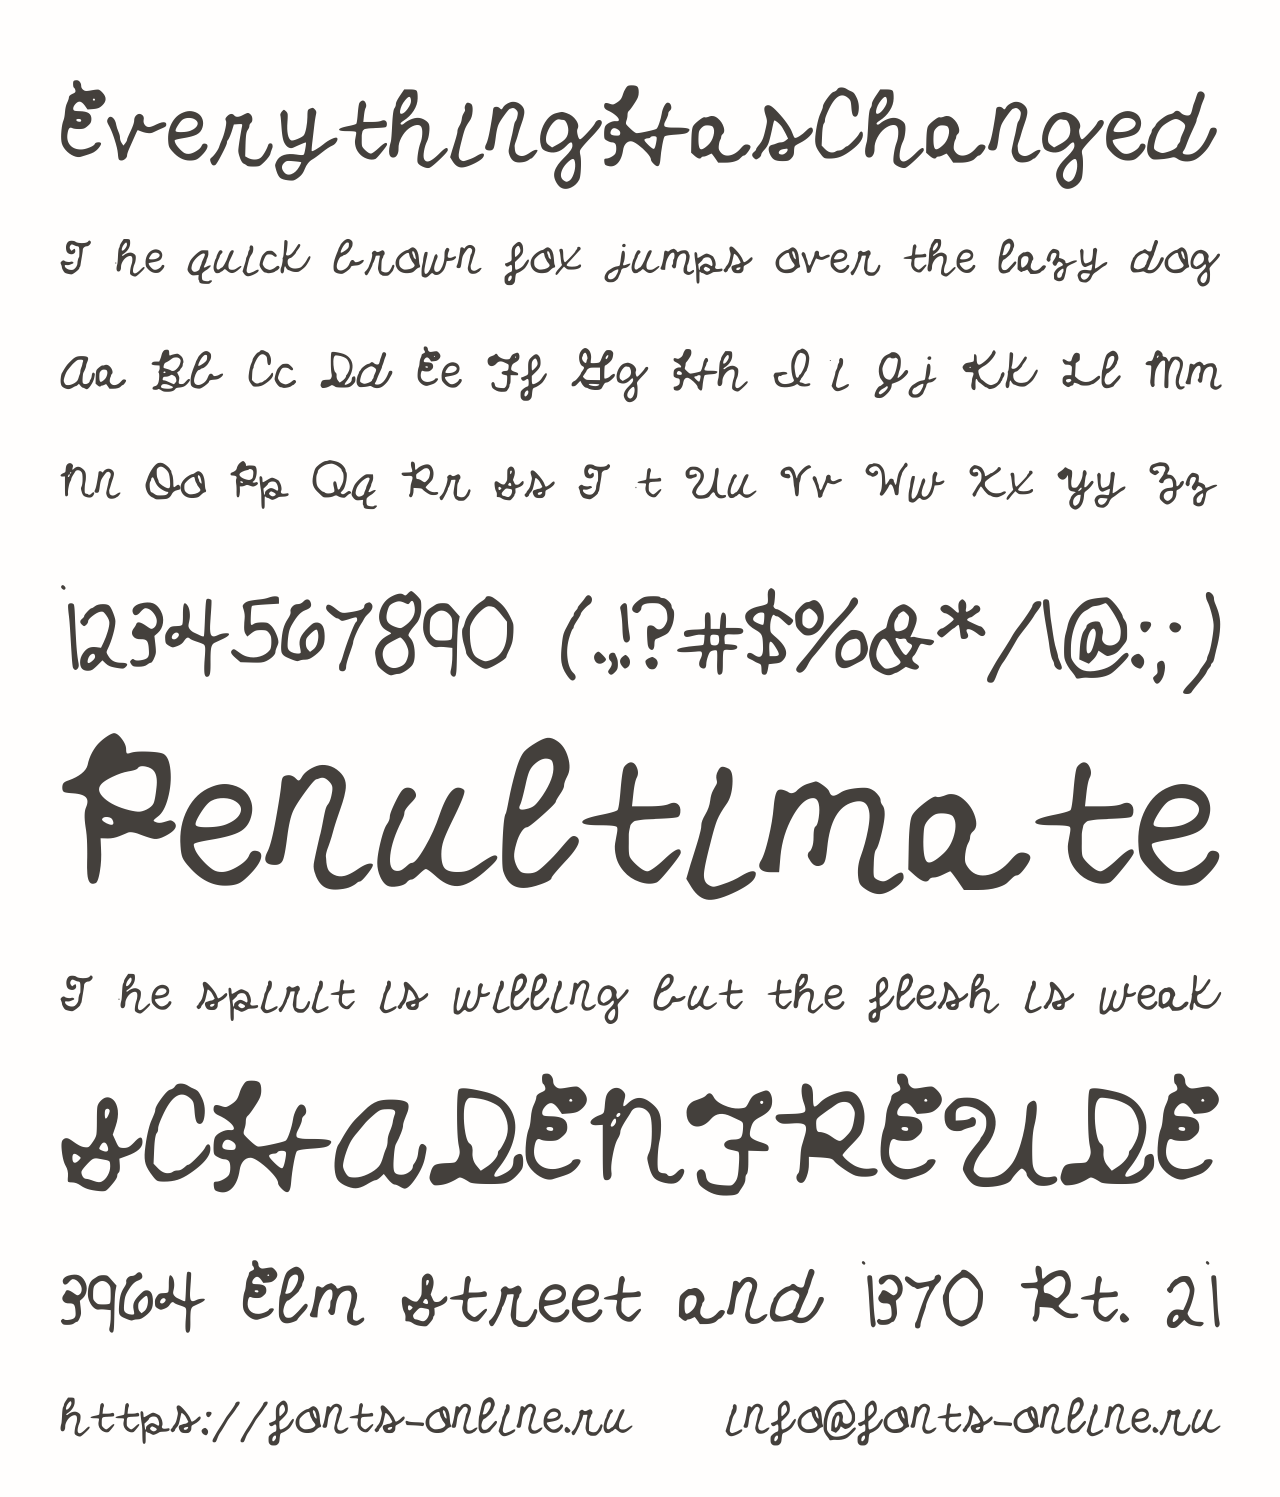 EverythingHasChanged
The quick brown fox jumps over the lazy dog
Aa Bb Cc Dd Ee Ff Gg Hh Ii Jj Kk Ll Mm
Nn Oo Pp Qq Rr Ss Tt Uu Vv Ww Xx Yy Zz
1234567890 (.,!?#$%&*/\@:;)
Penultimate
The spirit is willing but the flesh is weak
SCHADENFREUDE
3964 Elm Street and 1370 Rt. 21
https://fonts-online.ru info@fonts-online.ru